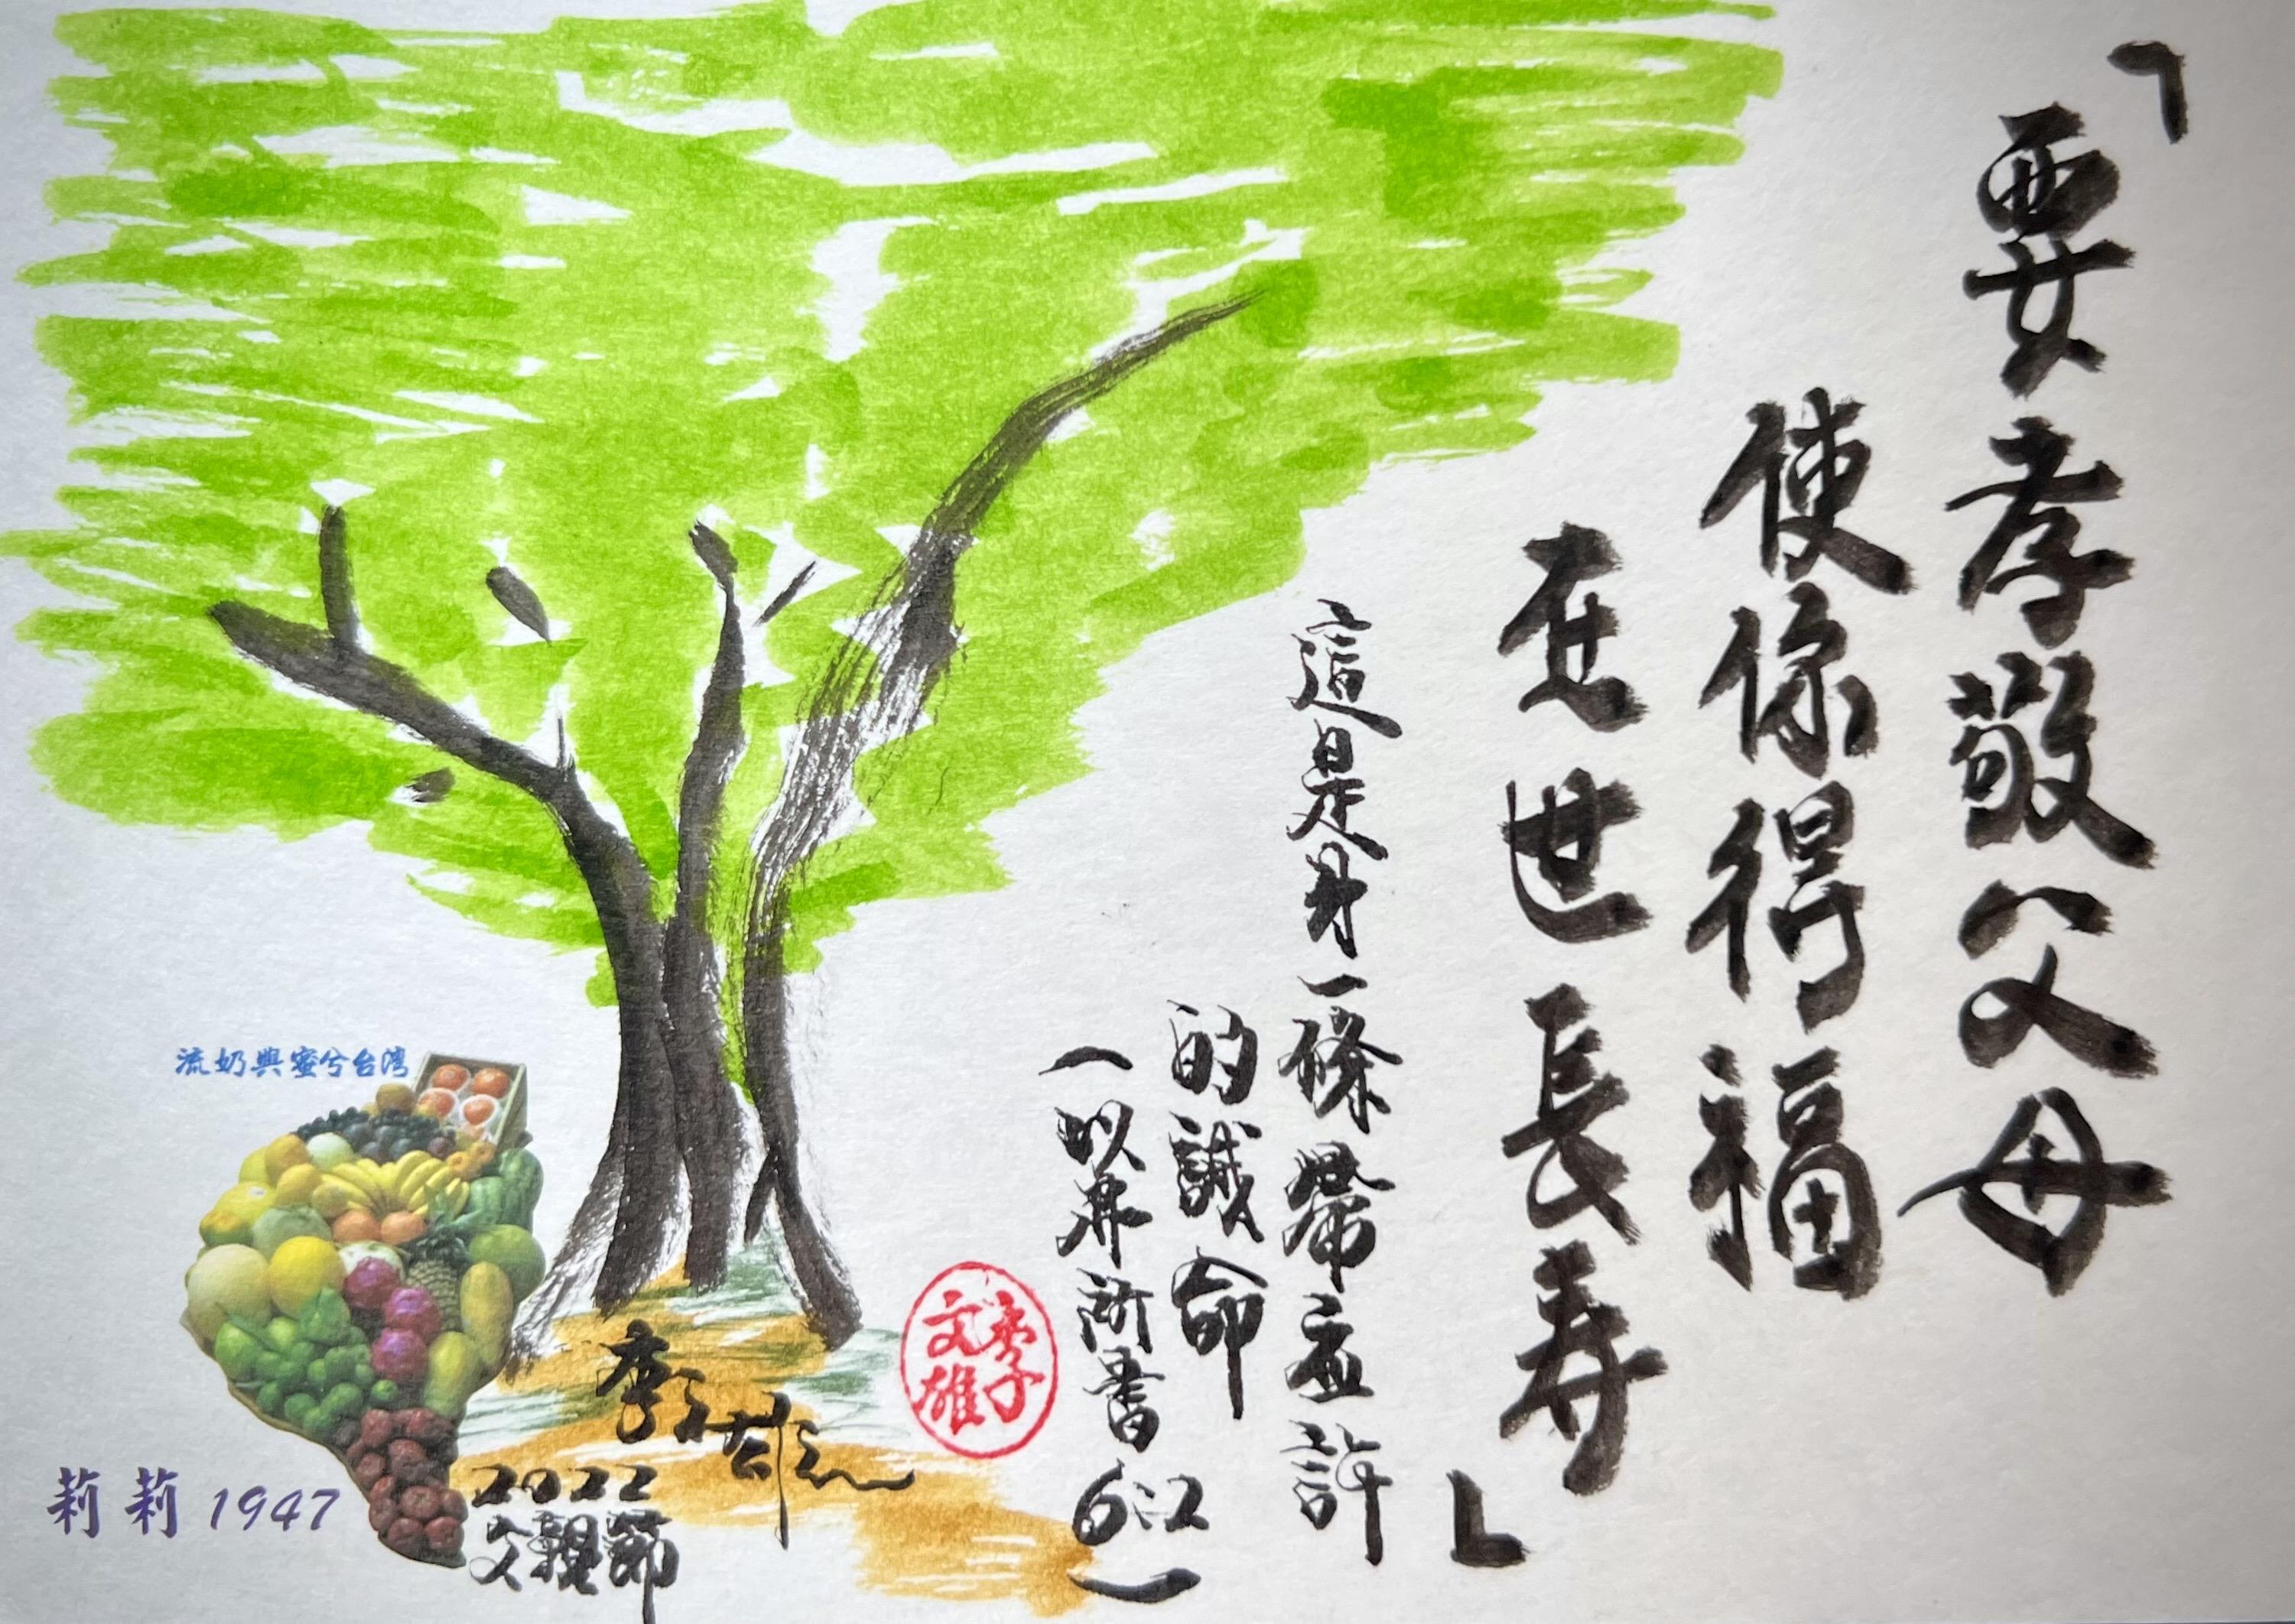 「要孝敬父母
使你得福
在世長壽」
這是第一條帶應許
的誡命
(以弗所書6:2)
李文雄
李文雄
2022
父親節
流奶與蜜兮台灣
莉莉1947